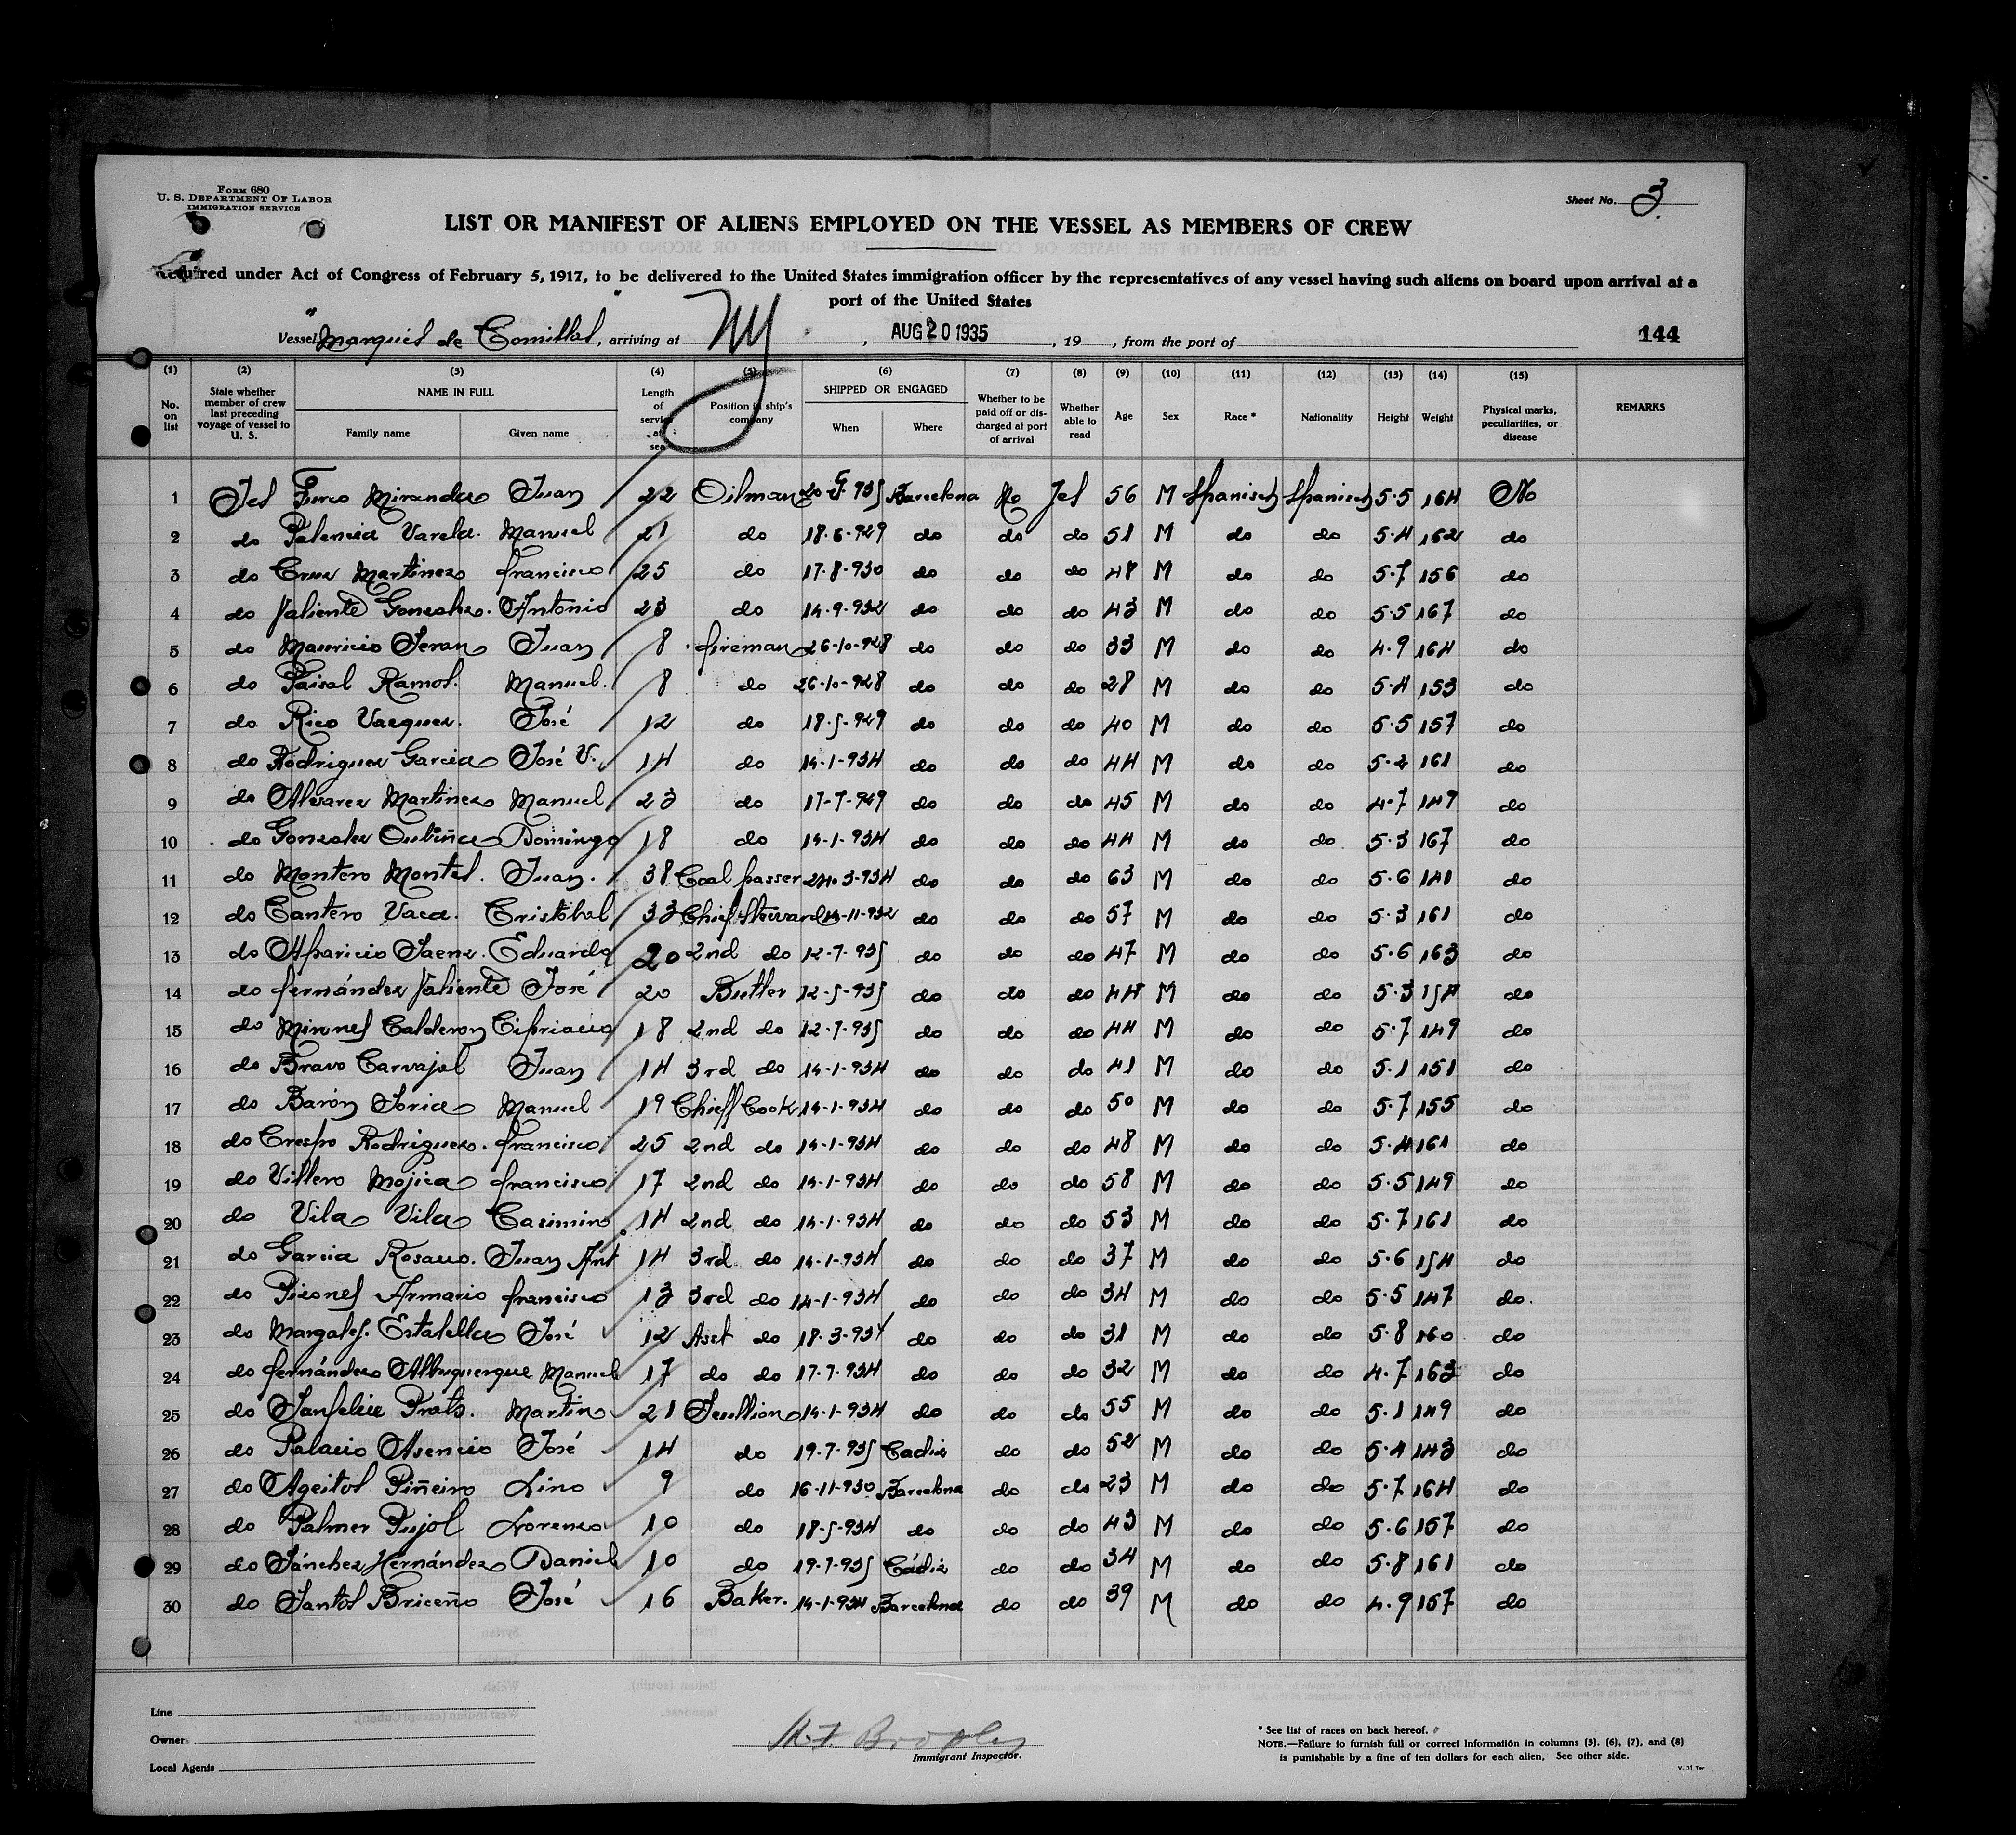 Form 680
U. S. Department Of Labor
Immigration Service
Sheet No. 3
LIST OR MANIFEST OF ALIENS EMPLOYED ON THE VESSEL AS MEMBERS OF CREW
Required under Act of Congress of February 5, 1917, to be delivered to the United States immigration officer by the representatives of any vessel having such aliens on board upon arrival at a
port of the United States
Vessel "Marqués de Comillas", arriving at NY, AUG 20 1935, 19 , from the port of 144
(1) (2) (3) (4) (5) (6) (7) (8) (9) (10) (11) (12) (13) (14) (15)
No. on list State whether member of crew last preceding voyage of vessel to U. S. NAME IN FULL Family name Given name Length of service at sea Position in ship's company SHIPPED OR ENGAGED When Where Whether to be paid off or discharged at port of arrival Whether able to read Age Sex Race * Nationality Height Weight Physical marks, peculiarities, or disease REMARKS
1 Yes Miranda Juan 22 Oilman Barcelona No Yes 56 M Spanish Spanish 5.5 164 No
2 do Palencia Varela. Manuel 21 do 18-6-929 do do do 51 M do do 5.4 162 do
3 do Cruz Martinez Francisco 25 do 17-8-930 do do do 48 M do do 5.7 156 do
4 do Valiente Gonzalez. Antonio 23 do 14-9-932 do do do 43 M do do 5.5 167 do
5 do Mauricio Juan 8 fireman 26-10-928 do do do 33 M do do 4.9 164 do
6 do Ramos. Manuel. 8 do 26-10-928 do do do 28 M do do 5.4 153 do
7 do Rico Vazquez. José 12 do 18-5-929 do do do 40 M do do 5.5 157 do
8 do Rodriguez Garcia José V. 14 do 14-1-934 do do do 44 M do do 5.2 161 do
9 do Alvarez Martinez Manuel 23 do 17-7-929 do do do 45 M do do 4.7 149 do
10 do Gonzalez Oubiña Domingo 18 do 14-1-934 do do do 44 M do do 5.3 167 do
11 do Montero Montes. Juan. 38 Coal passer 24-3-934 do do do 63 M do do 5.6 141 do
12 do Cantero Vaca. Cristóbal 33 Chief Steward 14-11-932 do do do 57 M do do 5.3 161 do
13 do Aparicio Saenz. Eduardo 20 2nd do 12-7-935 do do do 47 M do do 5.6 163 do
14 do Fernández Valiente José 20 Butler 12-5-935 do do do 44 M do do 5.3 154 do
15 do Mirones Calderon Cipriano 18 2nd do 12-7-935 do do do 44 M do do 5.7 149 do
16 do Bravo Carvajal Juan 14 3rd do 14-1-934 do do do 41 M do do 5.1 151 do
17 do Barón Soria Manuel 19 Chieff Cook 14-1-934 do do do 50 M do do 5.7 155 do
18 do Crespo Rodriguez. Francisco 25 2nd do 14-1-934 do do do 48 M do do 5.4 161 do
19 do Villero Mojica Francisco 17 2nd do 14-1-934 do do do 58 M do do 5.5 149 do
20 do Vila Vila Casimiro 14 2nd do 14-1-934 do do do 53 M do do 5.7 161 do
21 do Garcia Rosano. Juan Ant 14 3rd. do 14-1-934 do do do 37 M do do 5.6 154 do
22 do Armario Francisco 13 3rd do 14-1-934 do do do 34 M do do 5.5 147 do.
23 do Margalef. Estalella José 12 Asst do 18-3-934 do do do 31 M do do 5.8 160 do
24 do Fernández Albuquerque Manuel 17 do do 17-7-934 do do do 32 M do do 4.7 163 do
25 do Sanfeliu Prats. Martin 21 Scullion 14-1-934 do do do 55 M do do 5.1 149 do
26 do Palacio Asencio José 14 do 19-7-935 Cadiz do do 52 M do do 5.4 143 do
27 do Ageitos Piñeiro Lino 9 do 16-11-930 Barcelona do do 23 M do do 5.7 164 do
28 do Palmer Pujol Lorenzo 10 do 18-5-934 do do do 43 M do do 5.6 157 do
29 do Sánchez Hernández Daniel 10 do 19-7-935 Cádiz do do 34 M do do 5.8 161 do
30 do Santos Briceño José 16 Baker. 14-1-934 Barcelona do do 39 M do do 4.9 157 do
Line
Owners
Local Agents
Immigrant Inspector.
* See list of races on back hereof.
NOTE.—Failure to furnish full or correct information in columns (3), (6), (7), and (8)
is punishable by a fine of ten dollars for each alien. See other side.